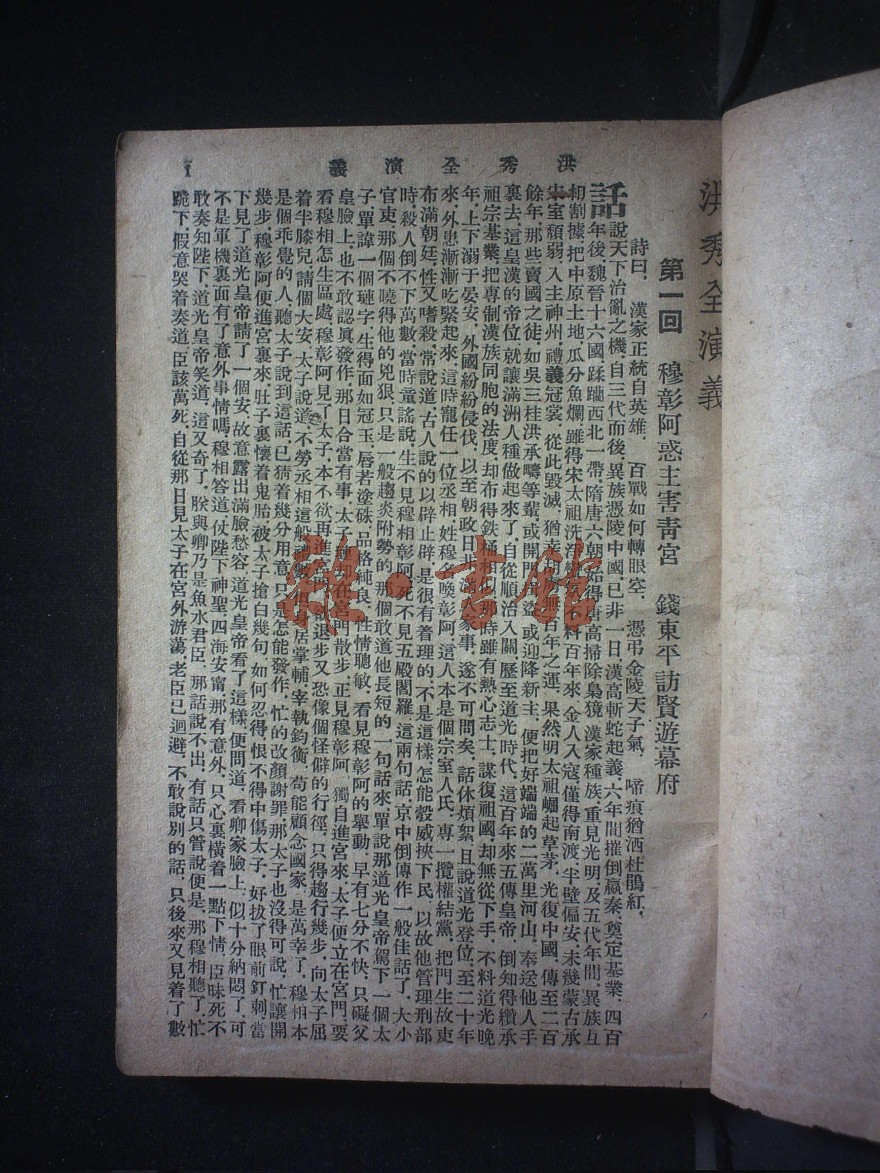 洪秀全演義
洪秀全演義
1
第一回 穆彰阿惑主害靑宮 錢東平訪賢遊幕府
詩曰、 漢家正統自英雄、 百戰如何轉眼空、 憑弔金陵天子氣、 啼痕猶洒杜鵑紅、
話說天下治亂之機、自三代而後、異族憑陵中國、已非一日、漢高斬蛇起義、六年間摧倒嬴秦、奠定基業、四百
年後、魏晉十六國蹂躪西北一帶、隋唐六朝始得唐高掃除梟獍、漢家種族、重見光明、及五代年間、異族互
相割據、把中原土地、瓜分魚爛、雖得宋太祖洗淨 不料百年來、金人入寇、僅得南渡半壁偏安、未幾蒙古承
宋室頹弱、入主神州、禮義冠裳、從此毀滅、猶幸胡虜無百年之運、果然明太祖崛起草茅、光復中國、傳至二百
餘年、那些賣國之徒、如吳三桂洪承疇等輩、或開門揖盜、或迎降新主、便把好端端的二萬里河山、奉送他人手
裏去、這皇漢的帝位、就讓滿洲人種做起來了、自從順治入關、歷至道光時代、這百年來五傳皇帝、倒知得纘承
祖宗基業、把專制漢族同胞的法度、却布得鉄桶相似、那時雖有熱心志士、謀復祖國、却無從下手、不料道光晚
年、上下溺于晏安、外國紛紛侵伐、以至朝政日 滿 家事、遂不可問矣、話休煩絮、且說道光登位、至二十年
來、外患漸漸吃緊起來、這時寵任一位丞相、姓穆名喚彰阿、這人本是個宗室人氏、專一攬權結黨、把門生故吏
布滿朝廷、性又嗜殺、常說道、古人說的以辟止辟、是很有着理的、不是這樣、怎能彀威挾下民、以故他管理刑部
時、殺人倒不下萬數、當時童謠說、生不見穆相彰阿、死不見五殿閻羅、這兩句話、京中倒傳作一般佳話了、大小
官吏、那個不曉得他的兇狠、只是一般趨炎附勢的、那個敢道他長短的一句話來、單說那道光皇帝駕下一個太
子、單諱一個璉字、生得面如冠玉、唇若塗硃、品格純良、性情聰敏、看見穆彰阿的舉動、早有七分不快、只礙父
皇臉上、也不敢認眞發作、那日合當有事、太子璉却在宮門散步、正見穆彰阿、獨自進宮來、太子便立在宮門、要
看穆相怎生區處、穆彰阿見了太子、本不欲再進 退步、又恐像個怪僻的行徑、只得趨行幾步、向太子屈
着半膝兒請個大安、太子說道、不勞丞相這般 居掌輔、宰執鈞衡、苟能顧念國家、是萬幸了、穆相本
是個乖覺的人、聽太子說到這話、已猜着幾分用意、只是怎能發作、忙的改顔謝罪、那太子也沒得可說、忙讓開
幾步、穆彰阿便進宮裏來、肚子裏懷着鬼胎、被太子搶白幾句、如何忍得、恨不得中傷太子、好拔了眼前釘刺、當
下見了道光皇帝請了一個安、故意露出滿臉愁容、道光皇帝看了這樣、便問道、看卿家臉上、似十分納悶了、可
不是軍機裏面有了意外事情嗎、穆相答道、仗陛下神聖、四海安甯、那有意外、只心裏橫着一點下情、臣昧死不
敢奏知陛下、道光皇帝笑道、這又奇了、朕與卿乃是魚水君臣、那話說不出、有話只管說便是、那穆相聽了、忙
跪下、假意哭着奏道、臣該萬死、自從那日見太子在宮外游蕩、老臣已迴避、不敢說別的話、只後來又見着了數
雜·書館